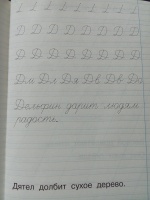 Д Д Д Д Д Д Д
Д Д Д Д Д Д Д
Дм Дл Дя Дв Дв
Дельфин дарит людям
радость.
Дятел долбит сухое дерево.